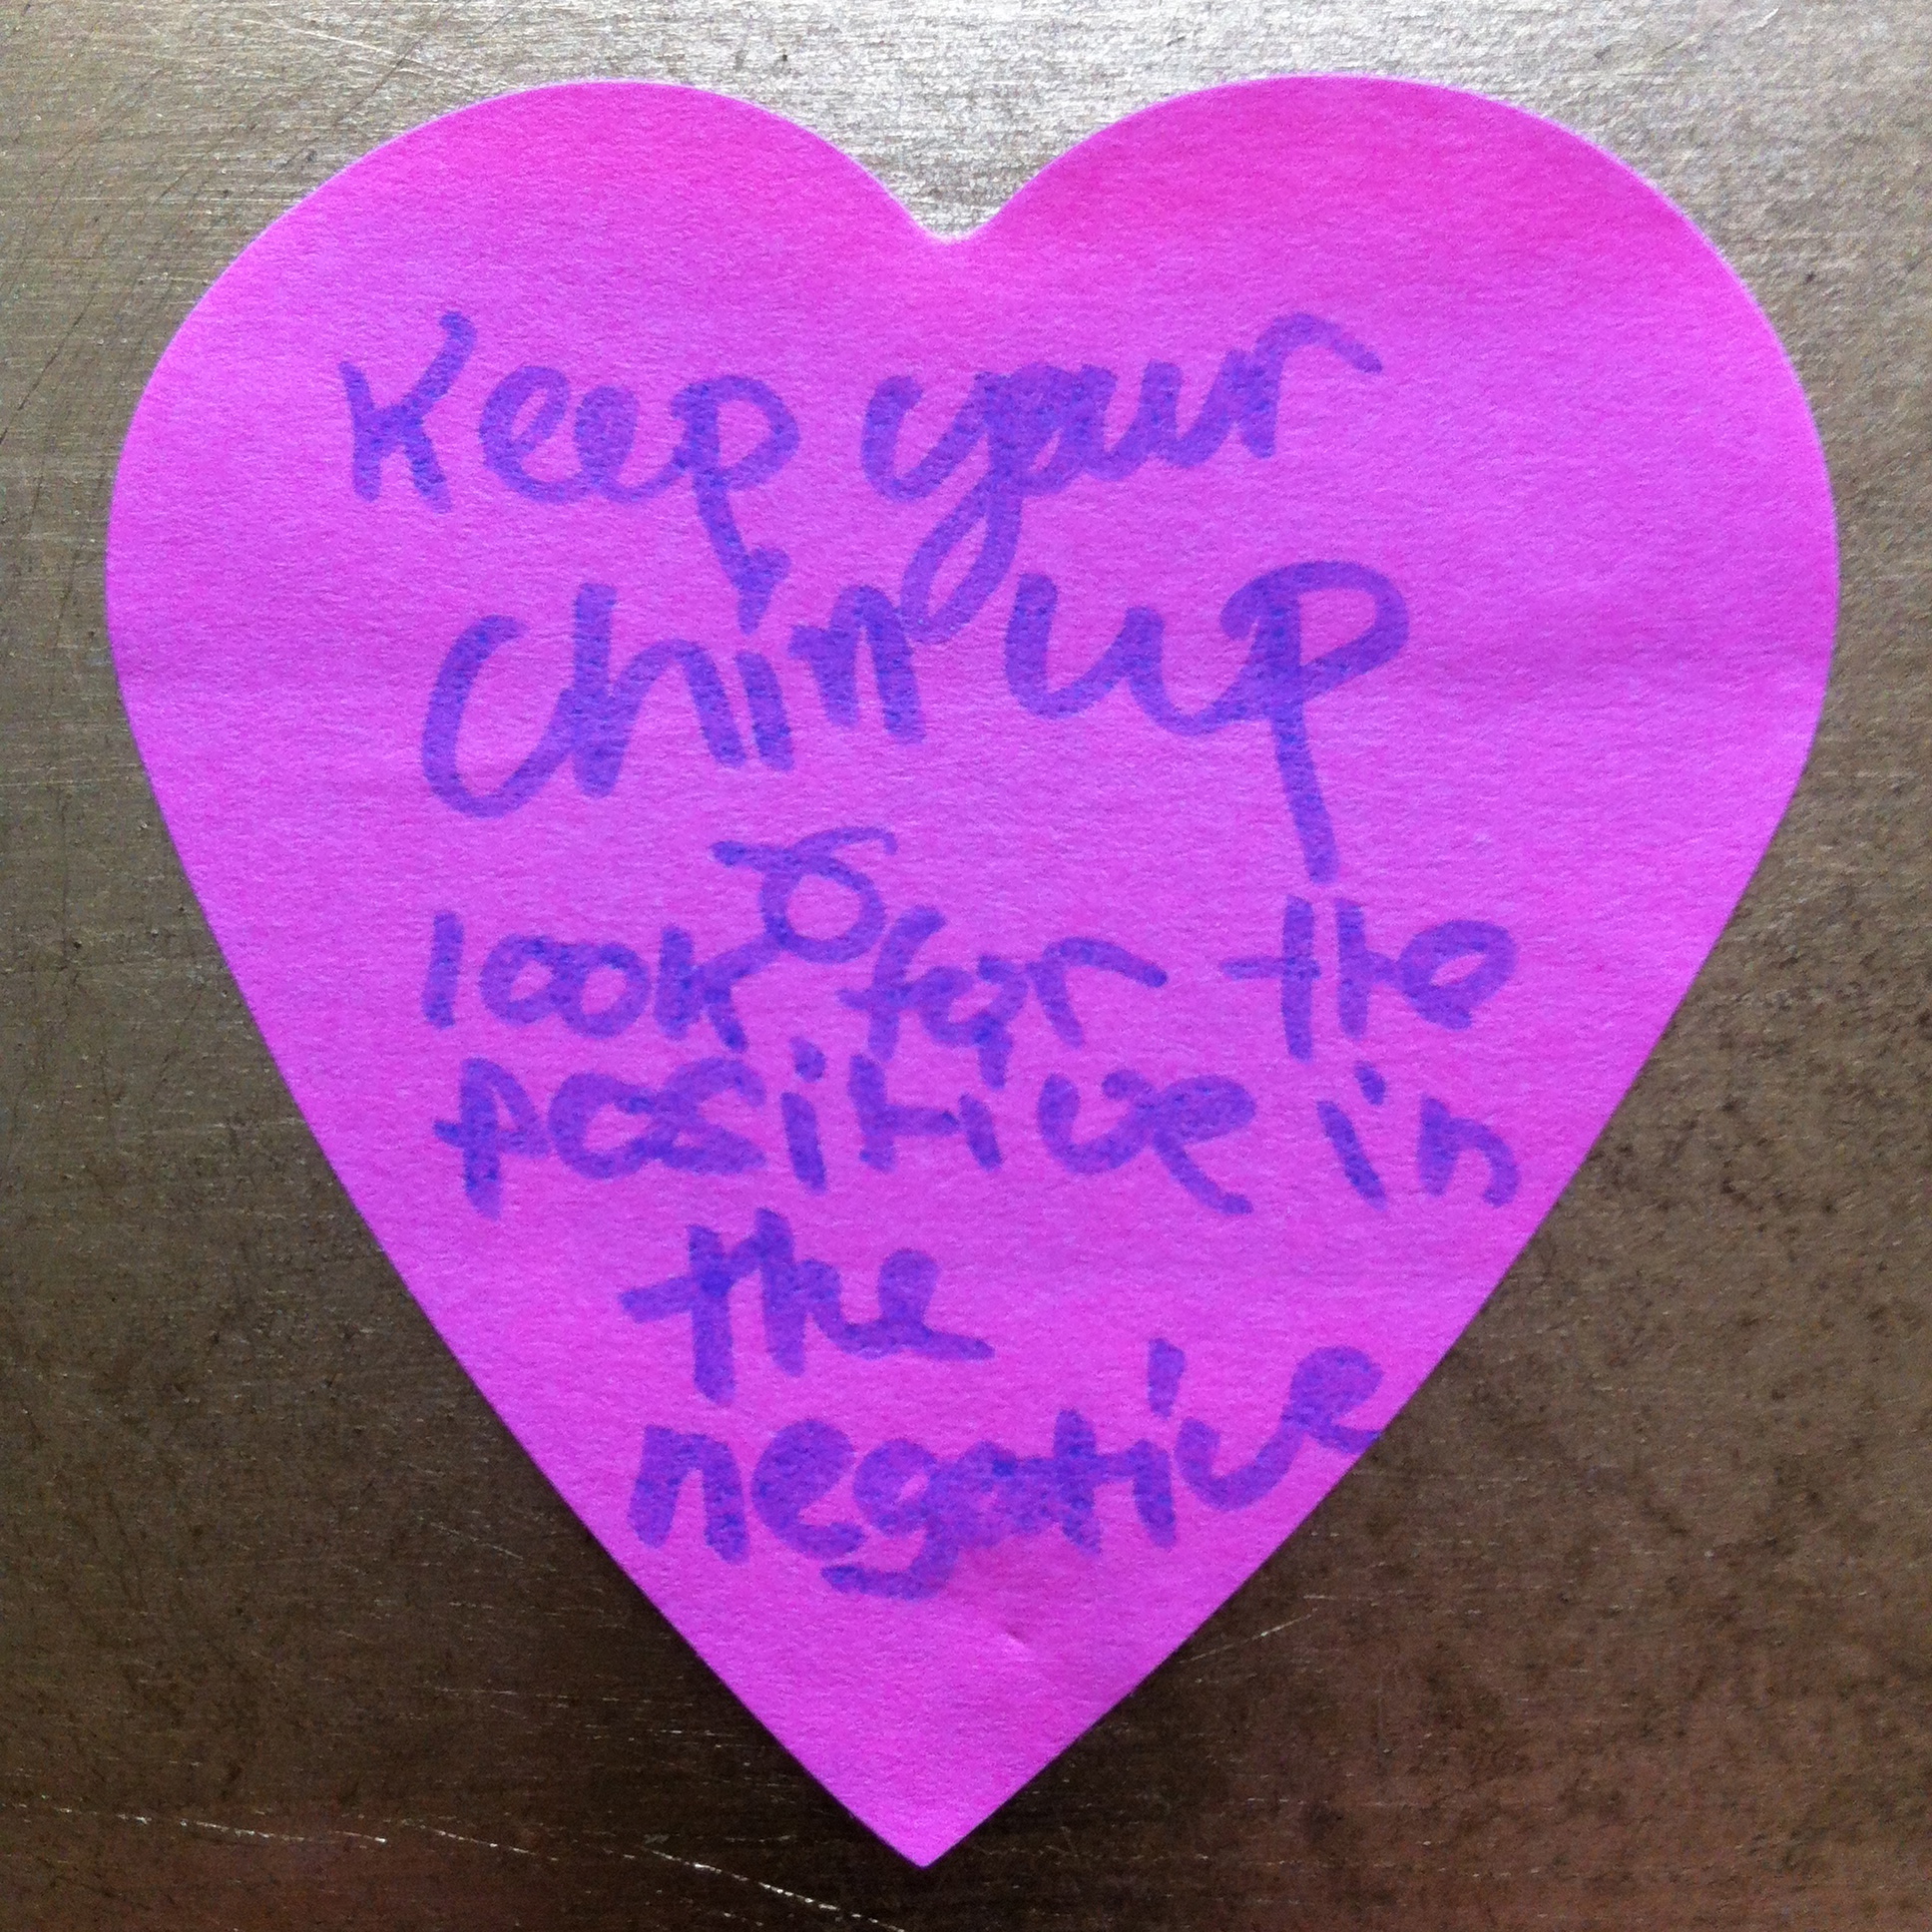 Keep your
Chin up
&
look for the
positive in
the
negative